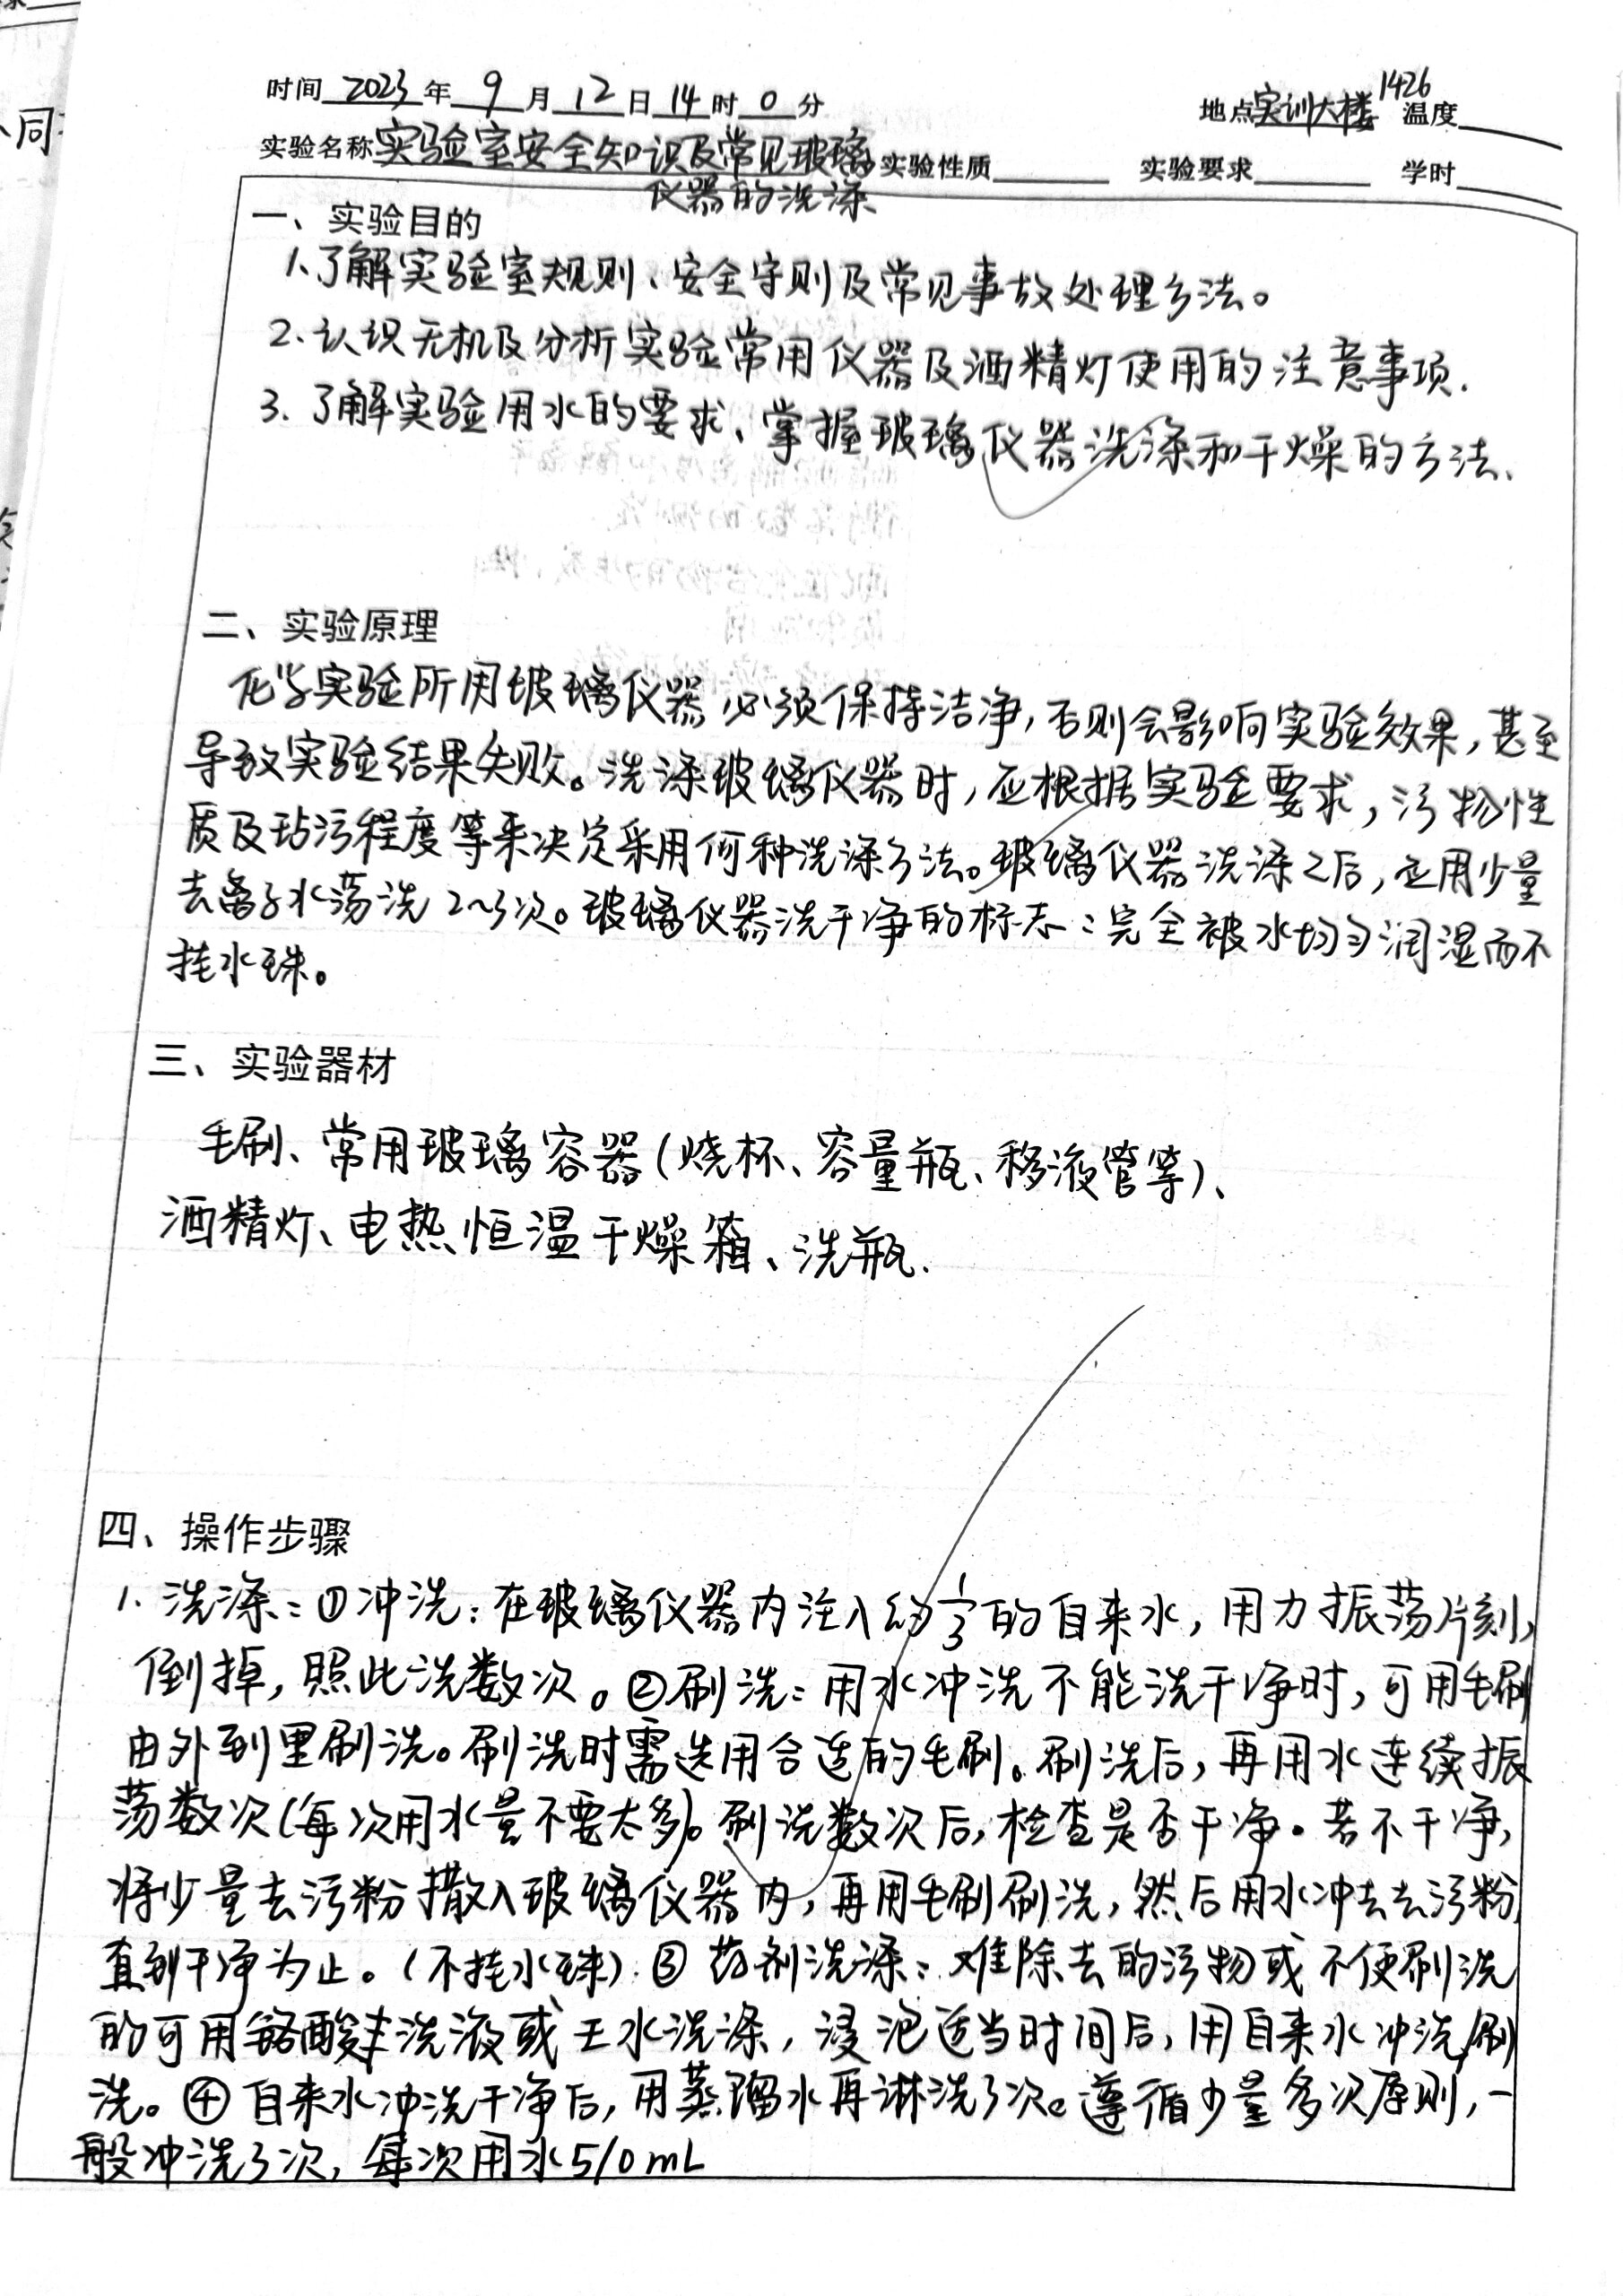 时间 2023 年 9 月 12 日 14 时 0 分 地点 实训大楼1426 温度
实验名称 实验室安全知识及常见玻璃 实验性质 实验要求 学时
仪器的洗涤
一、实验目的
1、了解实验室规则、安全守则及常见事故处理方法。
2、认识无机及分析实验常用仪器及酒精灯使用的注意事项.
3、了解实验用水的要求、掌握玻璃仪器洗涤和干燥的方法、
二、实验原理
化学实验所用玻璃仪器必须保持洁净,否则会影响实验效果,甚至
导致实验结果失败。洗涤玻璃仪器时,应根据实验要求,污物性
质及玷污程度等来决定采用何种洗涤方法。玻璃仪器洗涤之后,应用少量
去离子水荡洗2~3次。玻璃仪器洗干净的标志:完全被水均匀润湿而不
挂水珠。
三、实验器材
毛刷、常用玻璃容器(烧杯、容量瓶、移液管等)、
酒精灯、电热恒温干燥箱、洗瓶.
四、操作步骤
1. 洗涤:①冲洗:在玻璃仪器内注入约1/3的自来水,用力振荡片刻,
倒掉,照此洗数次。②刷洗:用水冲洗不能洗干净时,可用毛刷
由外到里刷洗。刷洗时需选用合适的毛刷。刷洗后,再用水连续振
荡数次(每次用水量不要太多)。刷洗数次后,检查是否干净。若不干净,
将少量去污粉撒入玻璃仪器内,再用毛刷刷洗,然后用水冲去去污粉,
直到干净为止。(不挂水珠).③药剂洗涤:难除去的污物或不便刷洗
的可用铬酸洗液或王水洗涤,浸泡适当时间后,用自来水冲洗,刷
洗。④自来水冲洗干净后,用蒸馏水再淋洗3次。遵循少量多次原则,一
般冲洗3次,每次用水5/0mL
同